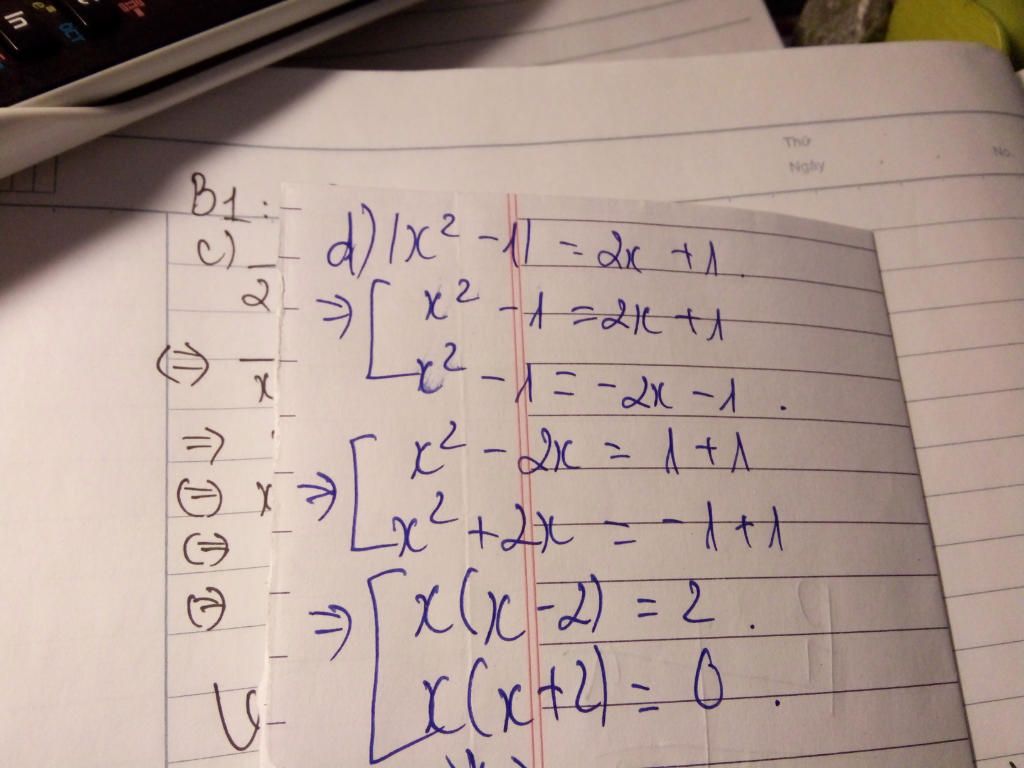 ln
e^
OCT
Thứ
Ngày
No.
B1:
c)
2
(=)
x
=>
(=) x
(=)
(=)
V
d) |x² - 1| = 2x + 1.
=> [ x² - 1 = 2x + 1
x² - 1 = -2x - 1.
=> [ x² - 2x = 1 + 1
x² + 2x = -1 + 1
=> [ x(x - 2) = 2.
x(x + 2) = 0.